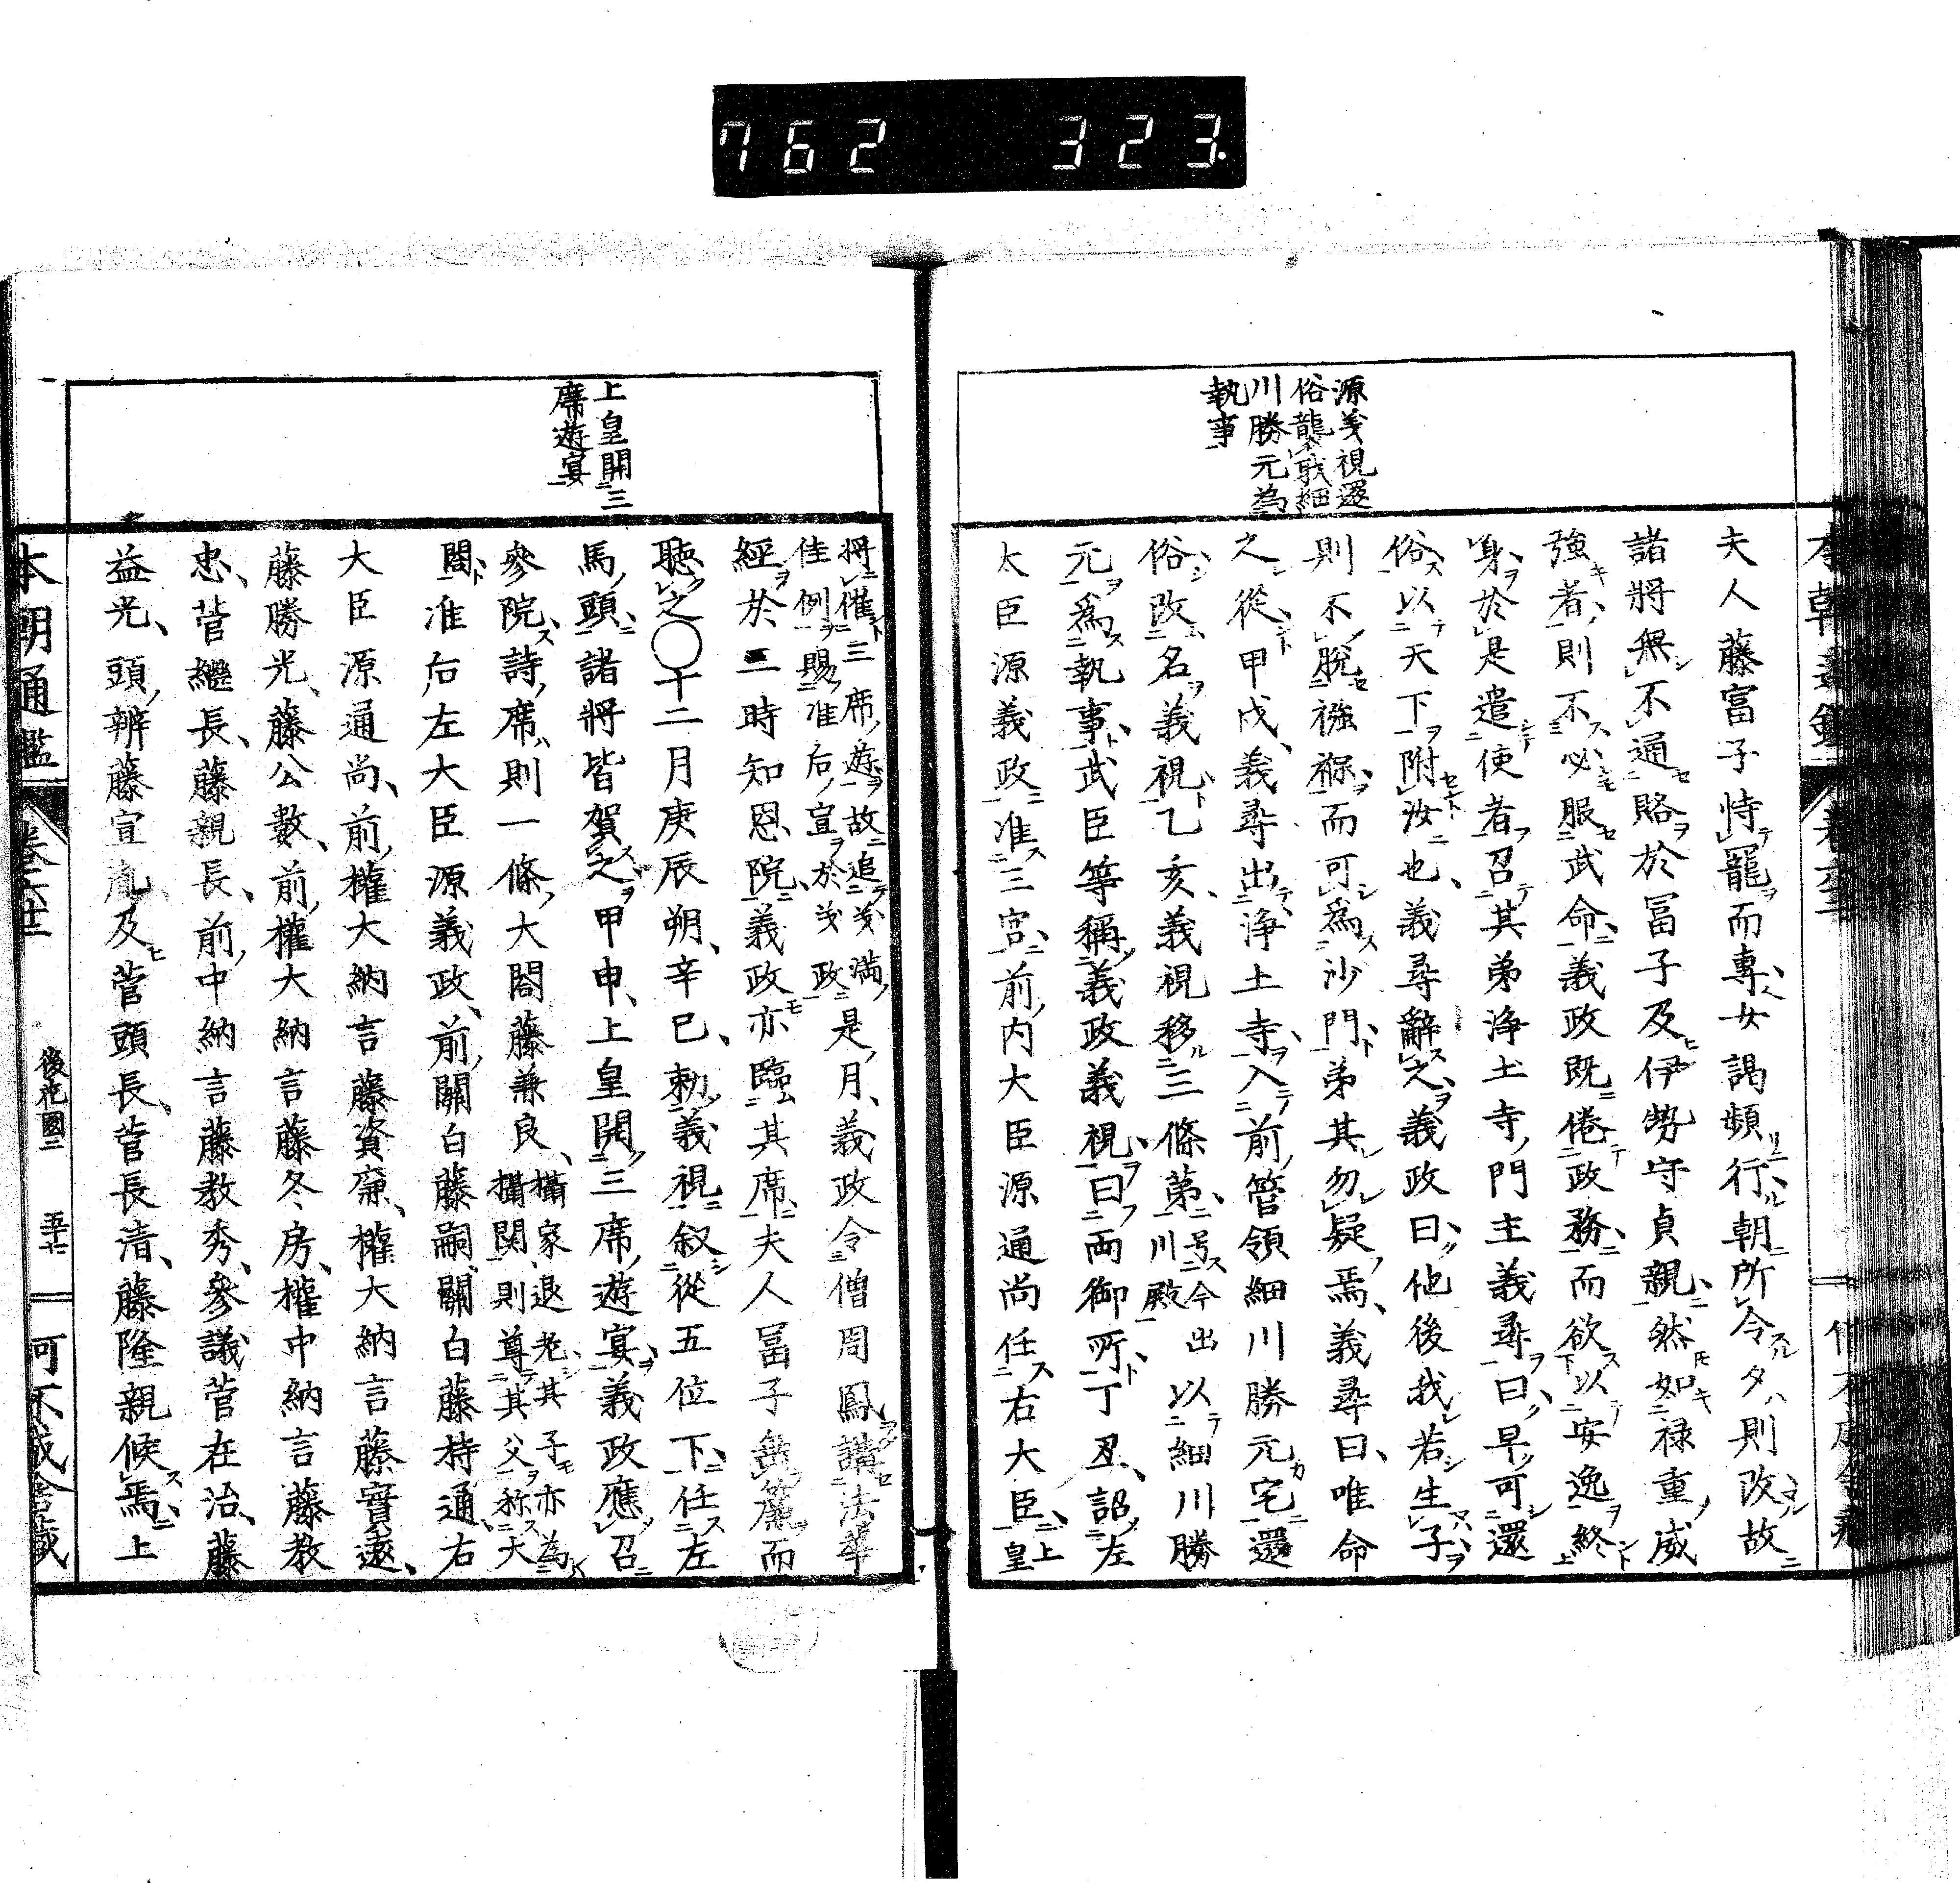 762 323.
源義視還
俗襲職細
川勝元為
執事
夫人藤富子恃寵而專女謁頻行朝所令夕則改故
諸將無不通賂於冨子及伊勢守貞親然如禄重威
強者則不必服武命義政既倦政務而欲以安逸終
身於是遣使者召其弟浄土寺門主義尋曰早可還
俗以天下附汝也義尋辭之義政曰他後我若生子
則不脱襁褓而可為沙門弟其勿疑焉義尋曰唯命
之從甲戌義尋出浄土寺入前管領細川勝元宅還
俗改名義視乙亥義視移三條第号今出川殿以細川勝
元為執事武臣等稱義政義視曰兩御所丁丑詔左
大臣源義政准三宮前内大臣源通尚任右大臣上皇
將催三席遊故追義滿佳例賜准后宣於義政是月義政令僧周鳳講法華
經於二時知恩院義政亦臨其席夫人冨子無簾而
聽之〇十二月庚辰朔辛巳勅義視叙從五位下任左
馬頭諸將皆賀之甲申上皇開三席遊宴義政應召
參院詩席則一條大閤藤兼良攝家退老其子亦為攝関則尊其父称大
閤准后左大臣源義政前關白藤嗣關白藤持通右
大臣源通尚前權大納言藤資廉權大納言藤實遠
藤勝光藤公數前權大納言藤冬房權中納言藤教
忠菅繼長藤親長前中納言藤教秀參議菅在治藤
益光頭辨藤宣胤及菅頭長菅長清藤隆親候焉上
上皇開三
席遊宴
本朝通鑑
後花園二
五十七